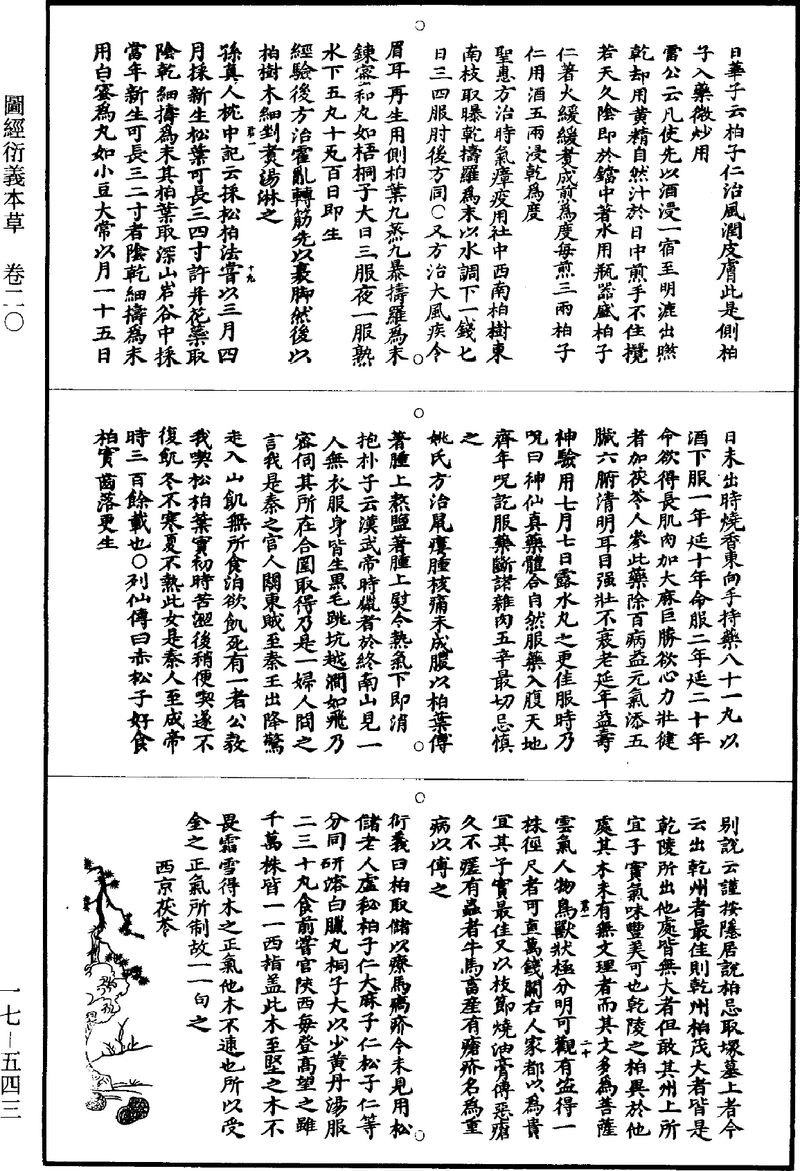 圖經衍義本草　卷二〇
一七－五四三
日華子云柏子仁治風潤皮膚此是側柏
子入藥微炒用
雷公云凡使先以酒浸一宿至明漉出㬠
乾却用黃精自然汁於日中煎手不住攪
若天久陰即於鐺中著水用瓶器盛柏子
仁著火緩緩煑成煎為度每煎三兩柏子
仁用酒五兩浸乾為度
聖惠方治時氣瘴疫用社中西南柏樹東
南枝取曝乾擣羅為末以水調下一錢匕
日三四服肘後方同〇又方治大風疾令
眉耳再生用側柏葉九蒸九暴擣羅為末
鍊蜜和丸如梧桐子大日三服夜一服熟
水下五丸十丸百日即生
經驗後方治霍亂轉筋先以裹脚然後以
柏樹木細剉煑湯淋之
孫真人枕中記云採松柏法嘗以三月四
月採新生松葉可長三四寸許并花蘂取
陰乾細擣為末其柏葉取深山岩谷中採
當年新生可長三二寸者陰乾細擣為末
用白蜜為丸如小豆大常以月一十五日
日未出時燒香東向手持藥八十一丸以
酒下服一年延十年命服二年延二十年
命欲得長肌肉加大麻巨勝欲心力壯健
者加茯苓人參此藥除百病益元氣添五
臟六腑清明耳目强壯不衰老延年益壽
神驗用七月七日露水丸之更佳服時乃
咒曰神仙真藥體合自然服藥入腹天地
齊年咒訖服藥斷諸雜肉五辛最切忌慎
之
姚氏方治鼠瘻腫核痛未成膿以柏葉傅
著腫上熬鹽著腫上熨令熱氣下即消
抱朴子云漢武帝時獵者於終南山見一
人無衣服身皆生黑毛跳坑越澗如飛乃
密伺其所在合圍取得乃是一婦人問之
言我是秦之宫人關東賊至秦王出降驚
走入山飢無所食洎欲飢死有一老公教
我喫松柏葉實初時苦澀後稍便喫遂不
復飢冬不寒夏不熱此女是秦人至成帝
時三百餘載也〇列仙傳曰赤松子好食
柏實齒落更生
别說云謹按隱居說柏忌取塚墓上者今
云出乾州者最佳則乾州柏茂大者皆是
乾陵所出他處皆無大者但敢其州上所
宜子實氣味豐美可也乾陵之柏異於他
處其木未有無文理者而其文多為菩薩
雲氣人物鳥獸狀極分明可觀有盜得一
株徑尺者可直萬錢關右人家都以為貴
宜其子實最佳又以枝節燒油膏傅惡瘡
久不瘥有蟲者牛馬畜產有瘡疥名為重
病以傅之
衍義曰柏取儲以療馬瘑疥今未見用松
儲老人虛秘柏子仁大麻子仁松子仁等
分同研溶白臘丸桐子大以少黃丹湯服
二三十丸食前嘗官陝西每登高望之雖
千萬株皆一一西指蓋此木至堅之木不
畏霜雪得木之正氣他木不逮也所以受
金之正氣所制故一一向之
西京茯苓